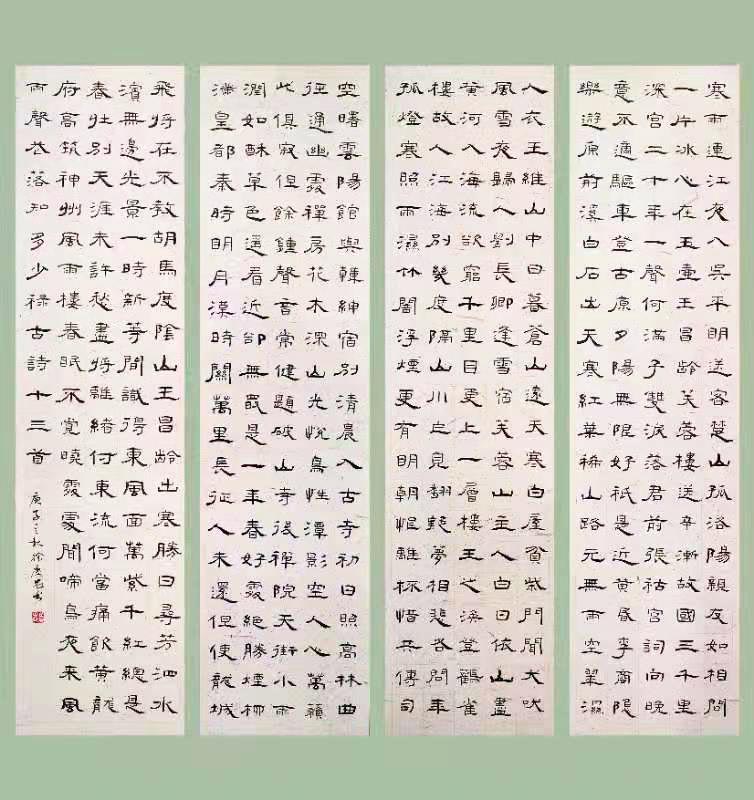 寒雨連江夜入吳平明送客楚山孤洛陽親友如相問
一片冰心在玉壺王昌齡芙蓉樓送辛漸故國三千里
深宮二十年一聲何滿子雙淚落君前張祜宮詞向晚
意不適驅車登古原夕陽無限好祇是近黃昏李商隱
樂遊原前溪白石出天寒紅葉稀山路元無雨空翠濕
人衣王維山中日暮蒼山遠天寒白屋貧柴門聞犬吠
風雪夜歸人劉長卿逢雪宿芙蓉山主人白日依山盡
黃河入海流欲窮千里目更上一層樓王之渙登鸛雀
樓故人江海別幾度隔山川乍見翻疑夢相悲各問年
孤燈寒照雨濕竹闇浮煙更有明朝恨離杯惜共傳司
空曙雲陽館與韓紳宿別清晨入古寺初日照高林曲
徑通幽處禪房花木深山光悅鳥性潭影空人心萬籟
此俱寂但餘鍾聲音常健題破山寺後禪院天街小雨
潤如酥草色遙看近卻無最是一年春好處絕勝煙柳
滿皇都秦時明月漢時關萬里長征人未還但使龍城
飛將在不教胡馬度陰山王昌齡出塞勝日尋芳泗水
濱無邊光景一時新等閒識得東風面萬紫千紅總是
春壯別天涯未許愁盡將離緒付東流何當痛飲黃龍
府高筑神州風雨樓春眠不覺曉處處聞啼鳥夜來風
雨聲花落知多少錄古詩十三首
庚子之秋徐慶書